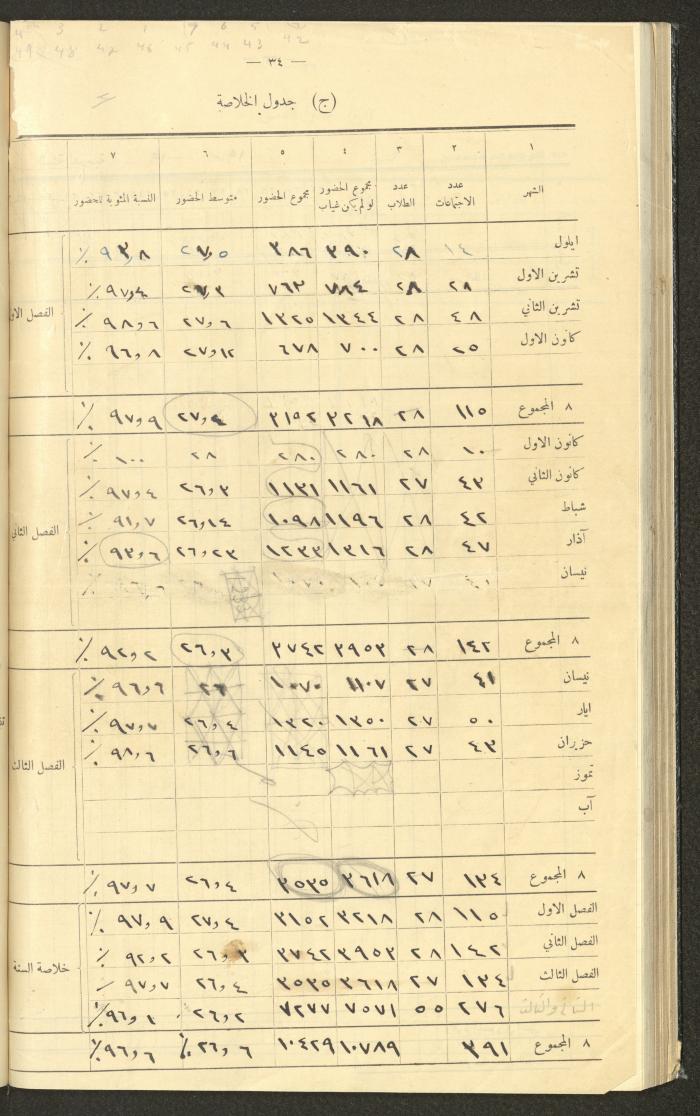 4 3 2 1 7 6 5
49 48 47 46 45 44 43 42
— ٣٤ —
(ج) جدول الخلاصة
١ ٢ ٣ ٤ ٥ ٦ ٧
الشهر عدد الاجتماعات عدد الطلاب مجموع الحضور لو لم يكن غياب مجموع الحضور متوسط الحضور النسبة المئوية للحضور
ايلول ١٤ ٢٨ ٣٩٠ ٣٨٦ ٢٧,٥ ٩٣,٨ ٪
تشرين الاول ٢٨ ٢٨ ٧٨٤ ٧٦٣ ٢٧,٣ ٩٧,٤ ٪
تشرين الثاني ٤٨ ٢٨ ١٣٤٤ ١٣٢٥ ٢٧,٦ ٩٨,٦ ٪
كانون الاول ٢٥ ٢٨ ٧٠٠ ٦٧٨ ٢٧,١٢ ٩٦,٨ ٪
الفصل الاول
٨ المجموع ١١٥ ٢٨ ٣٢١٨ ٣١٥٢ ٢٧,٤ ٩٧,٩ ٪
كانون الاول ١٠ ٢٨ ٢٨٠ ٢٨٠ ٢٨ ١٠٠ ٪
كانون الثاني ٤٣ ٢٧ ١١٦١ ١١٣١ ٢٦,٣ ٩٧,٤ ٪
شباط ٤٢ ٢٨ ١١٩٦ ١٠٩٨ ٢٦,١٤ ٩١,٧ ٪
آذار ٤٧ ٢٨ ١٣١٦ ١٢٣٣ ٢٦,٢٣ ٩٣,٦ ٪
نيسان
الفصل الثاني
٨ المجموع ١٤٢ ٢٨ ٣٩٥٣ ٣٧٤٢ ٢٦,٣ ٩٢,٢ ٪
نيسان ٤١ ٢٧ ١١٠٧ ١٠٧٠ ٢٦ ٩٦,٦ ٪
ايار ٥٠ ٢٧ ١٣٥٠ ١٣٢٠ ٢٦,٤ ٩٧,٧ ٪
حزيران ٤٣ ٢٧ ١١٦١ ١١٤٥ ٢٦,٦ ٩٨,٦ ٪
تموز
آب
الفصل الثالث
٨ المجموع ١٣٤ ٢٧ ٣٦١٨ ٣٥٣٥ ٢٦,٤ ٩٧,٧ ٪
الفصل الاول ١١٥ ٢٨ ٣٢١٨ ٣١٥٢ ٢٧,٤ ٩٧,٩ ٪
الفصل الثاني ١٤٢ ٢٨ ٣٩٥٣ ٣٧٤٢ ٢٦,٣ ٩٢,٢ ٪
الفصل الثالث ١٣٤ ٢٧ ٣٦١٨ ٣٥٣٥ ٢٦,٤ ٩٧,٧ ٪
٢٧٦ ٥٥ ٧٥٧١ ٧٢٧٧ ٢٦,٢ ٩٦,١ ٪
خلاصة السنة
٨ المجموع ٣٩١ ١٠٧٨٩ ١٠٤٢٩ ٢٦,٦ ٪ ٩٦,٦ ٪